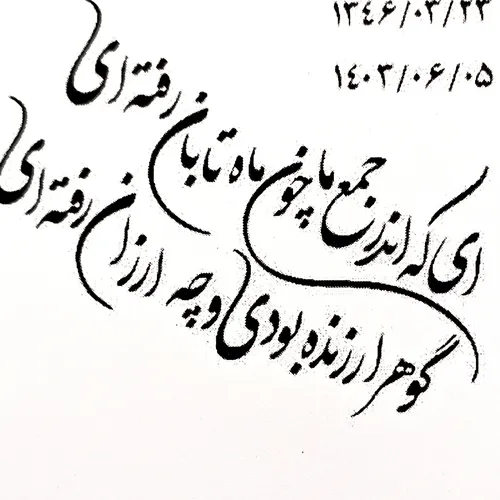 ۱۳۴۶/۰۳/۲۳
۱۴۰۳/۰۶/۰۵
ای که اندر جمع ما چون ماه تابان رفته ای
گوهر ارزنده بودی و چه ارزان رفته ای